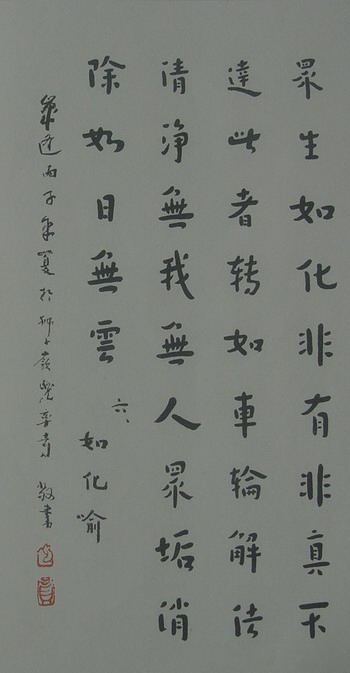 眾生如化非有非真不
達此者转如車輪解法
清净無我無人眾垢消
除如日無雲
六、如化喻
歲逢丙子年夏於
敬書